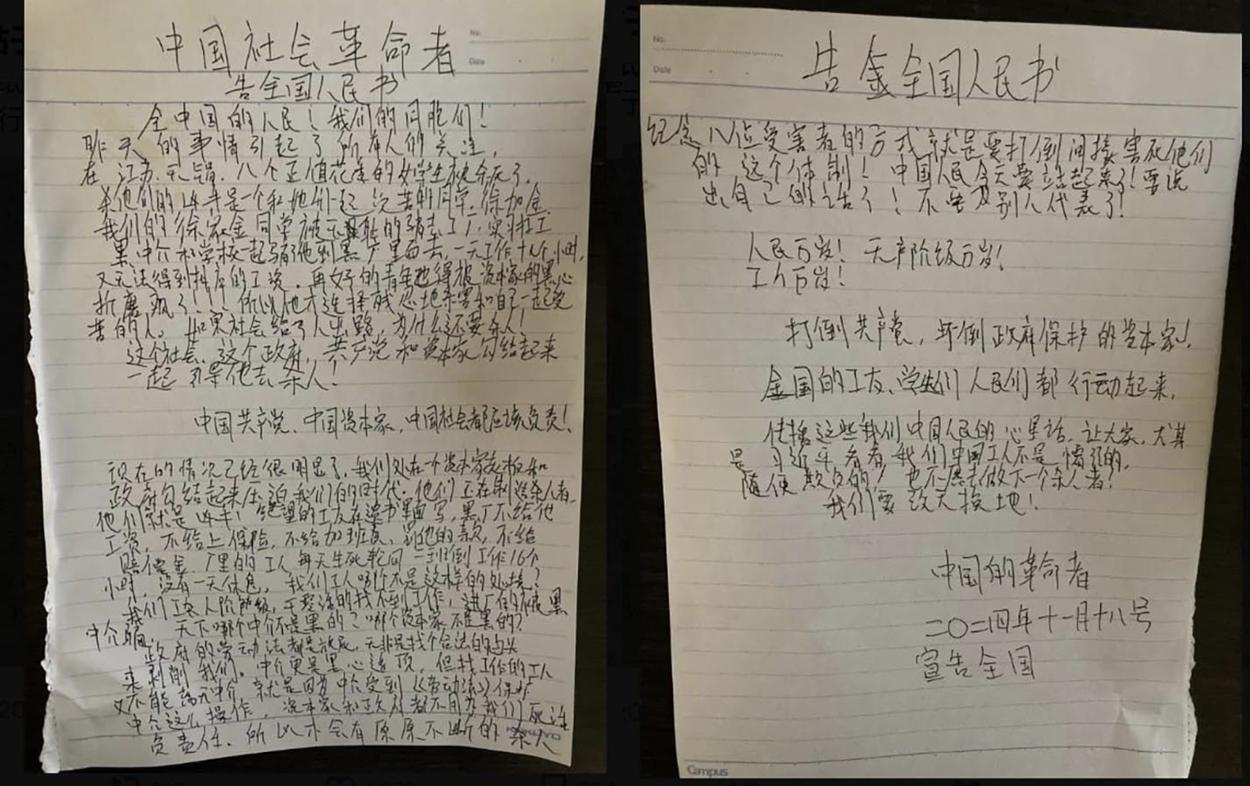 No.
Date
中国社会革命者
告全国人民书
全中国的人民！我们的同胞们！
昨天的事情引起了所有人的关注，
在江苏无锡，八个正值花季的女学生被杀死了，
杀他们的凶手是一个和她们一起读书的同学，徐加金
我们的徐家金同学被无良的骗去工厂，实习打工
黑中介和学校一起骗他到黑厂里面去，一天工作十几个小时，
又无法得到抖音的工资，再好的青年也得被资本家的黑心
折磨疯了！！所以他才选择残忍地杀害和自己一起受
苦的人，如果社会给了人出路，为什么还要杀人！
这个社会，这个政府，共产党和资本家勾结起来
一起 他去杀人！
中国共产党、中国资本家，中国社会都应该负责！
现在的情况已经很明显了，我们处在一个资本家老板和
政府勾结起来压迫我们的时代，他们正在制造杀人者，
他们就是凶手！绝望的工友在遗书里面写，黑厂不给他
工资，不给上保险，不给加班费，罚他的款，不给
赔偿金，厂里的工人每天生死轮间一班倒工作16个
小时，没有一天休息，我们工人哪个不是这样的处境？
我们工人阶级，干 的找不到工作，进厂的被黑
中介骗，天下哪个中介不是黑的？哪个资本家不是黑的？
政府的劳动法都是放屁，无非是找个合法的
来剥削我们，中介更是黑心连顶，但找工作的工人
又不能 中介，就是因为中介受到《劳动法》保护
中介这么操作，资本家和政府都不用为我们死
负责任，所以才会有源源不断的杀人
No.
Date
告全全国人民书
纪念八位受害者的方式就是要打倒间接害死他们
的这个体制！中国人民今天要站起来了！要说
出自己的话了！不 别人代表了！
人民万岁！无产阶级万岁！
工人万岁！
打倒共产党，打倒政府保护的资本家！
全国的工友、学生们 人民们都行动起来，
传播这些我们中国人民的心里话，让大家，尤其
是习近平看看，我们中国工人不是 的，
随便欺负的！也不愿去做下一个杀人者！
我们要改天换地！
中国的革命者
二〇二四年十一月十八号
宣告全国
Campus